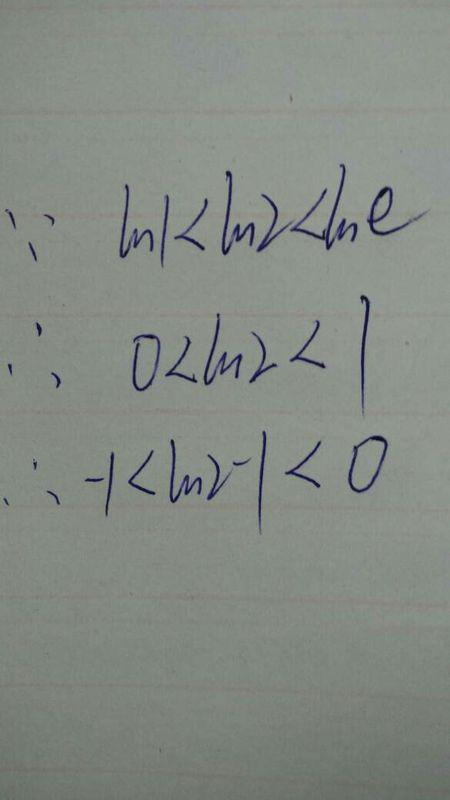 ∵ ln1<ln2<lne
∴ 0<ln2<1
∴ -1<ln2-1<0